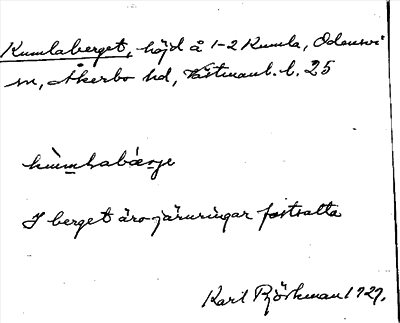 Kumlaberget, höjd å 1-2 Kumla, Odensvi
sn, Åkerbo hd, Västmanl. l. 25
I berget äro järnringar fastsatta
Karl Björkman 1929.